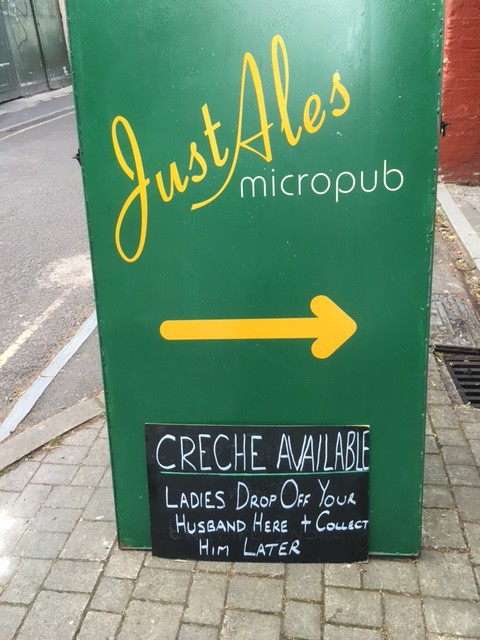 Just Ales
micropub
CRECHE AVAILABLE
LADIES DROP OFF YOUR
HUSBAND HERE + COLLECT
HIM LATER